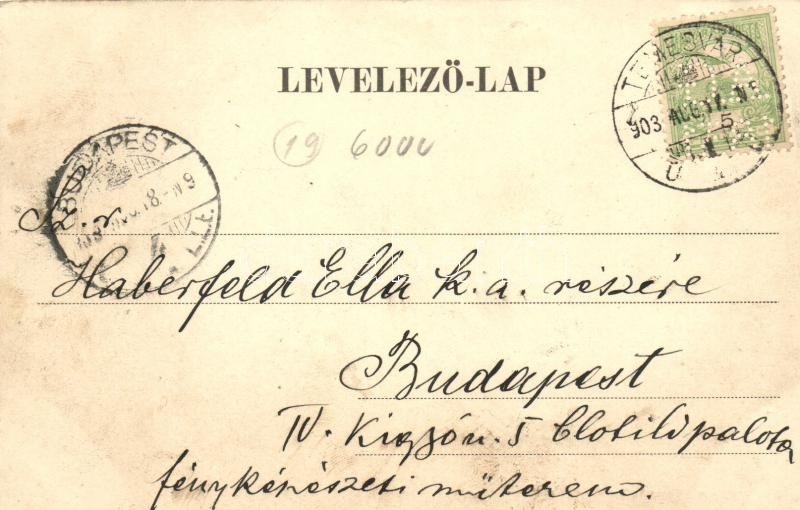 LEVELEZÖ-LAP
TEMESVÁR
903 AUG. 17. N 5
5.
19 6000
BUDAPEST
AUG. 18. - N 9
Haberfeld Ella k. a. részére
Budapest
IV. Kigyó u. 5 Clotild palota
fényképészeti műterem.